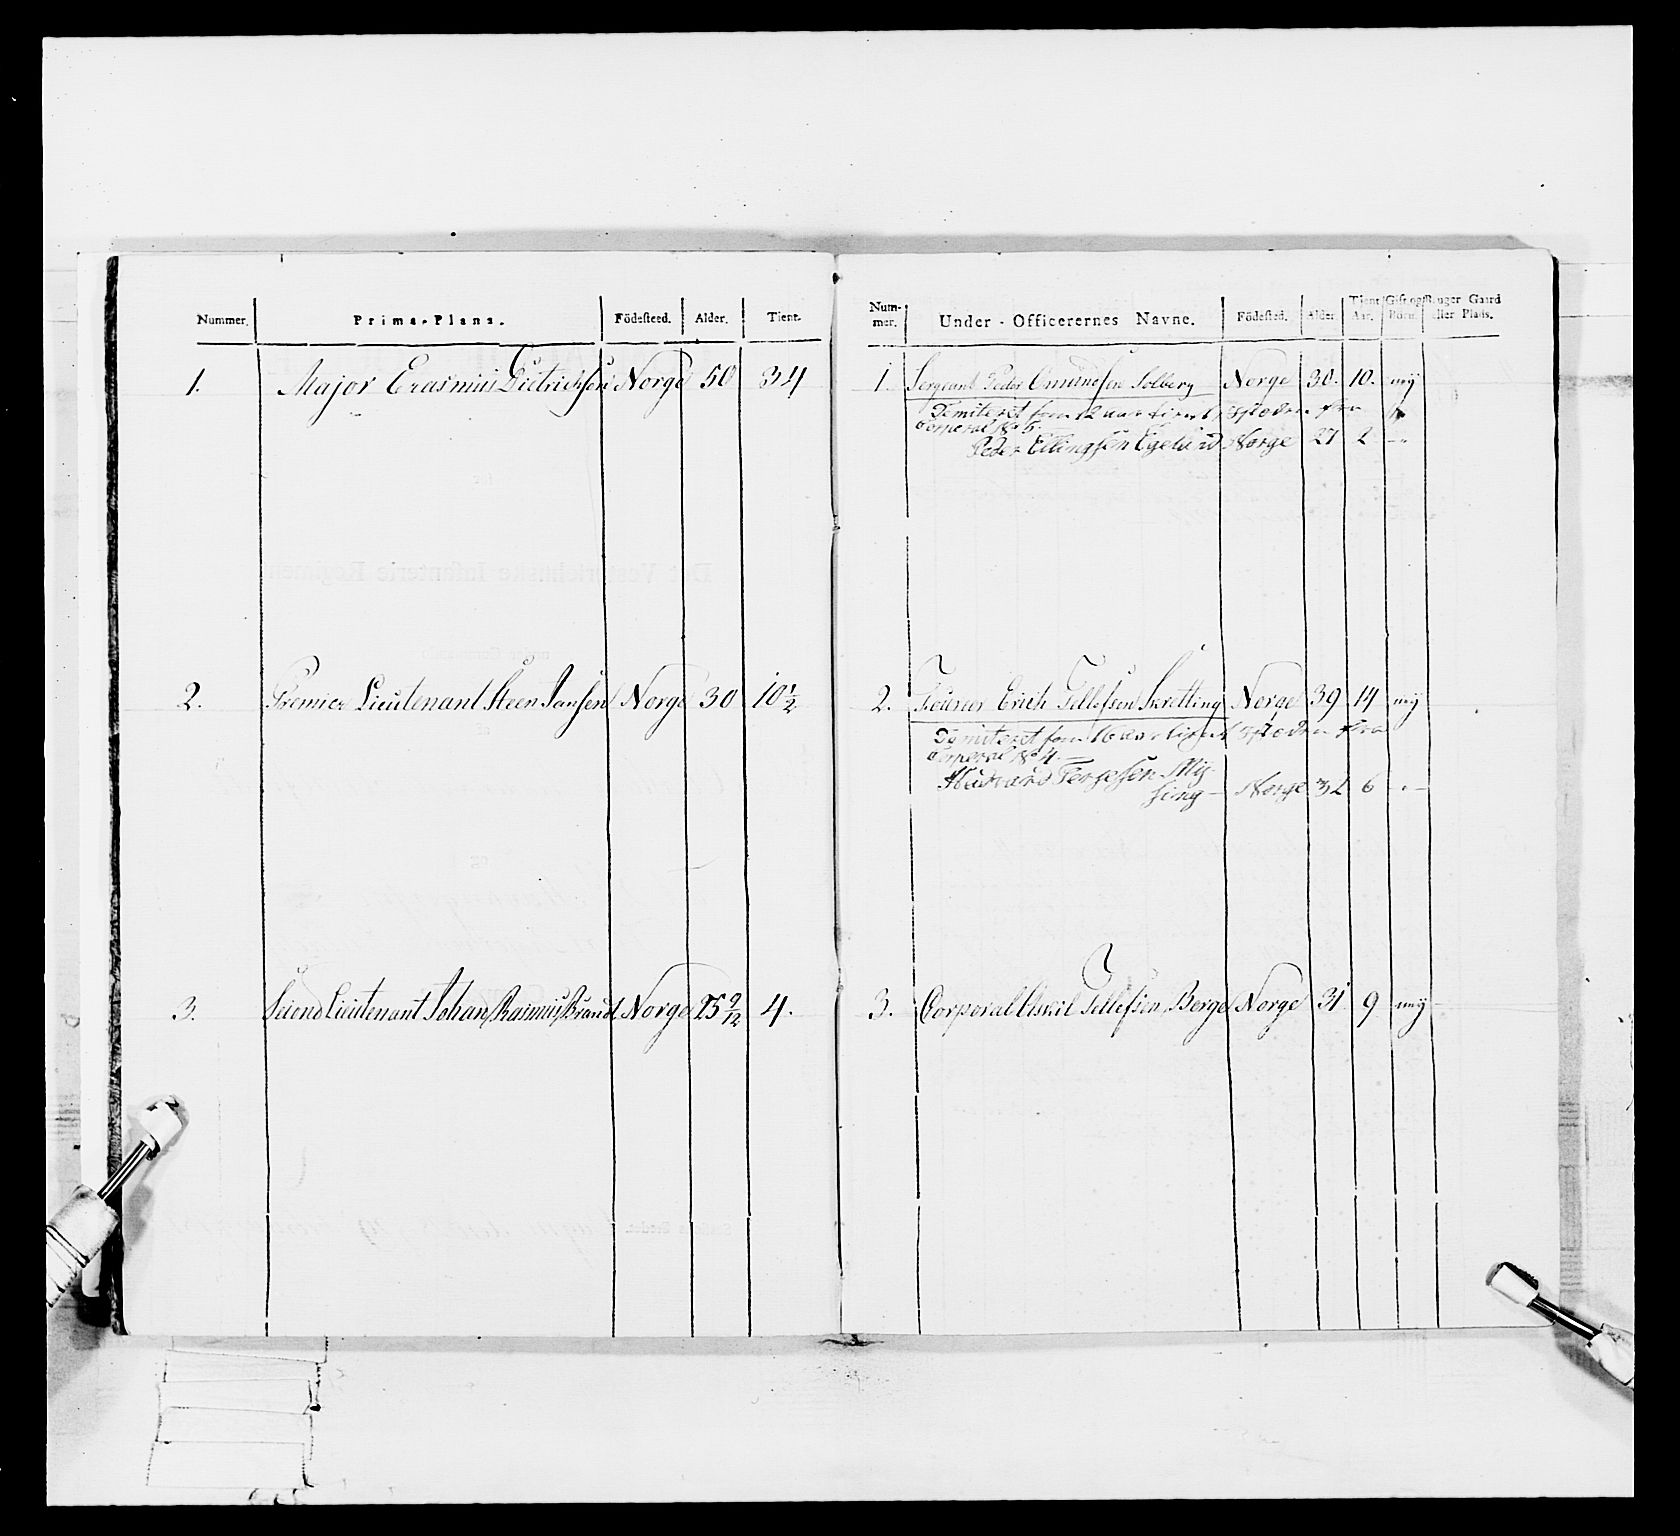 Nummer. Prima-Plana. Födesteed. Alder. Tient.
1. Major Erasmus Dietrichsen Norge 50 34
2. Premier Lieutenant Steen Jansen Norge 30 10 1/2
3. Second Lieutenant Johan Rasmus Brandt Norge 25 9/12 4.
Num-mer. Under-Officerernes Navne. Födested. Alder Tient Aar. Gift og Börn. Bruger Gaard eller Plads.
1. Sergeant Peder Omundsen Solberg Norge 30. 10. nej
Dimiteret som 12 aar tient, fra
Corporal No 5.
Peder Ellingsen Egelund Norge 27 2 -"-
2. Foureer Erich Tellefsen Skretting Norge 39 14 nej
Dimiteret som 16 aar tient, fra
Corporal No 4.
Hadvard Tergesen My-
sing - Norge 32 6 -"-
3. Corporal Eskil Tellefsen Berge Norge 31 9 nej